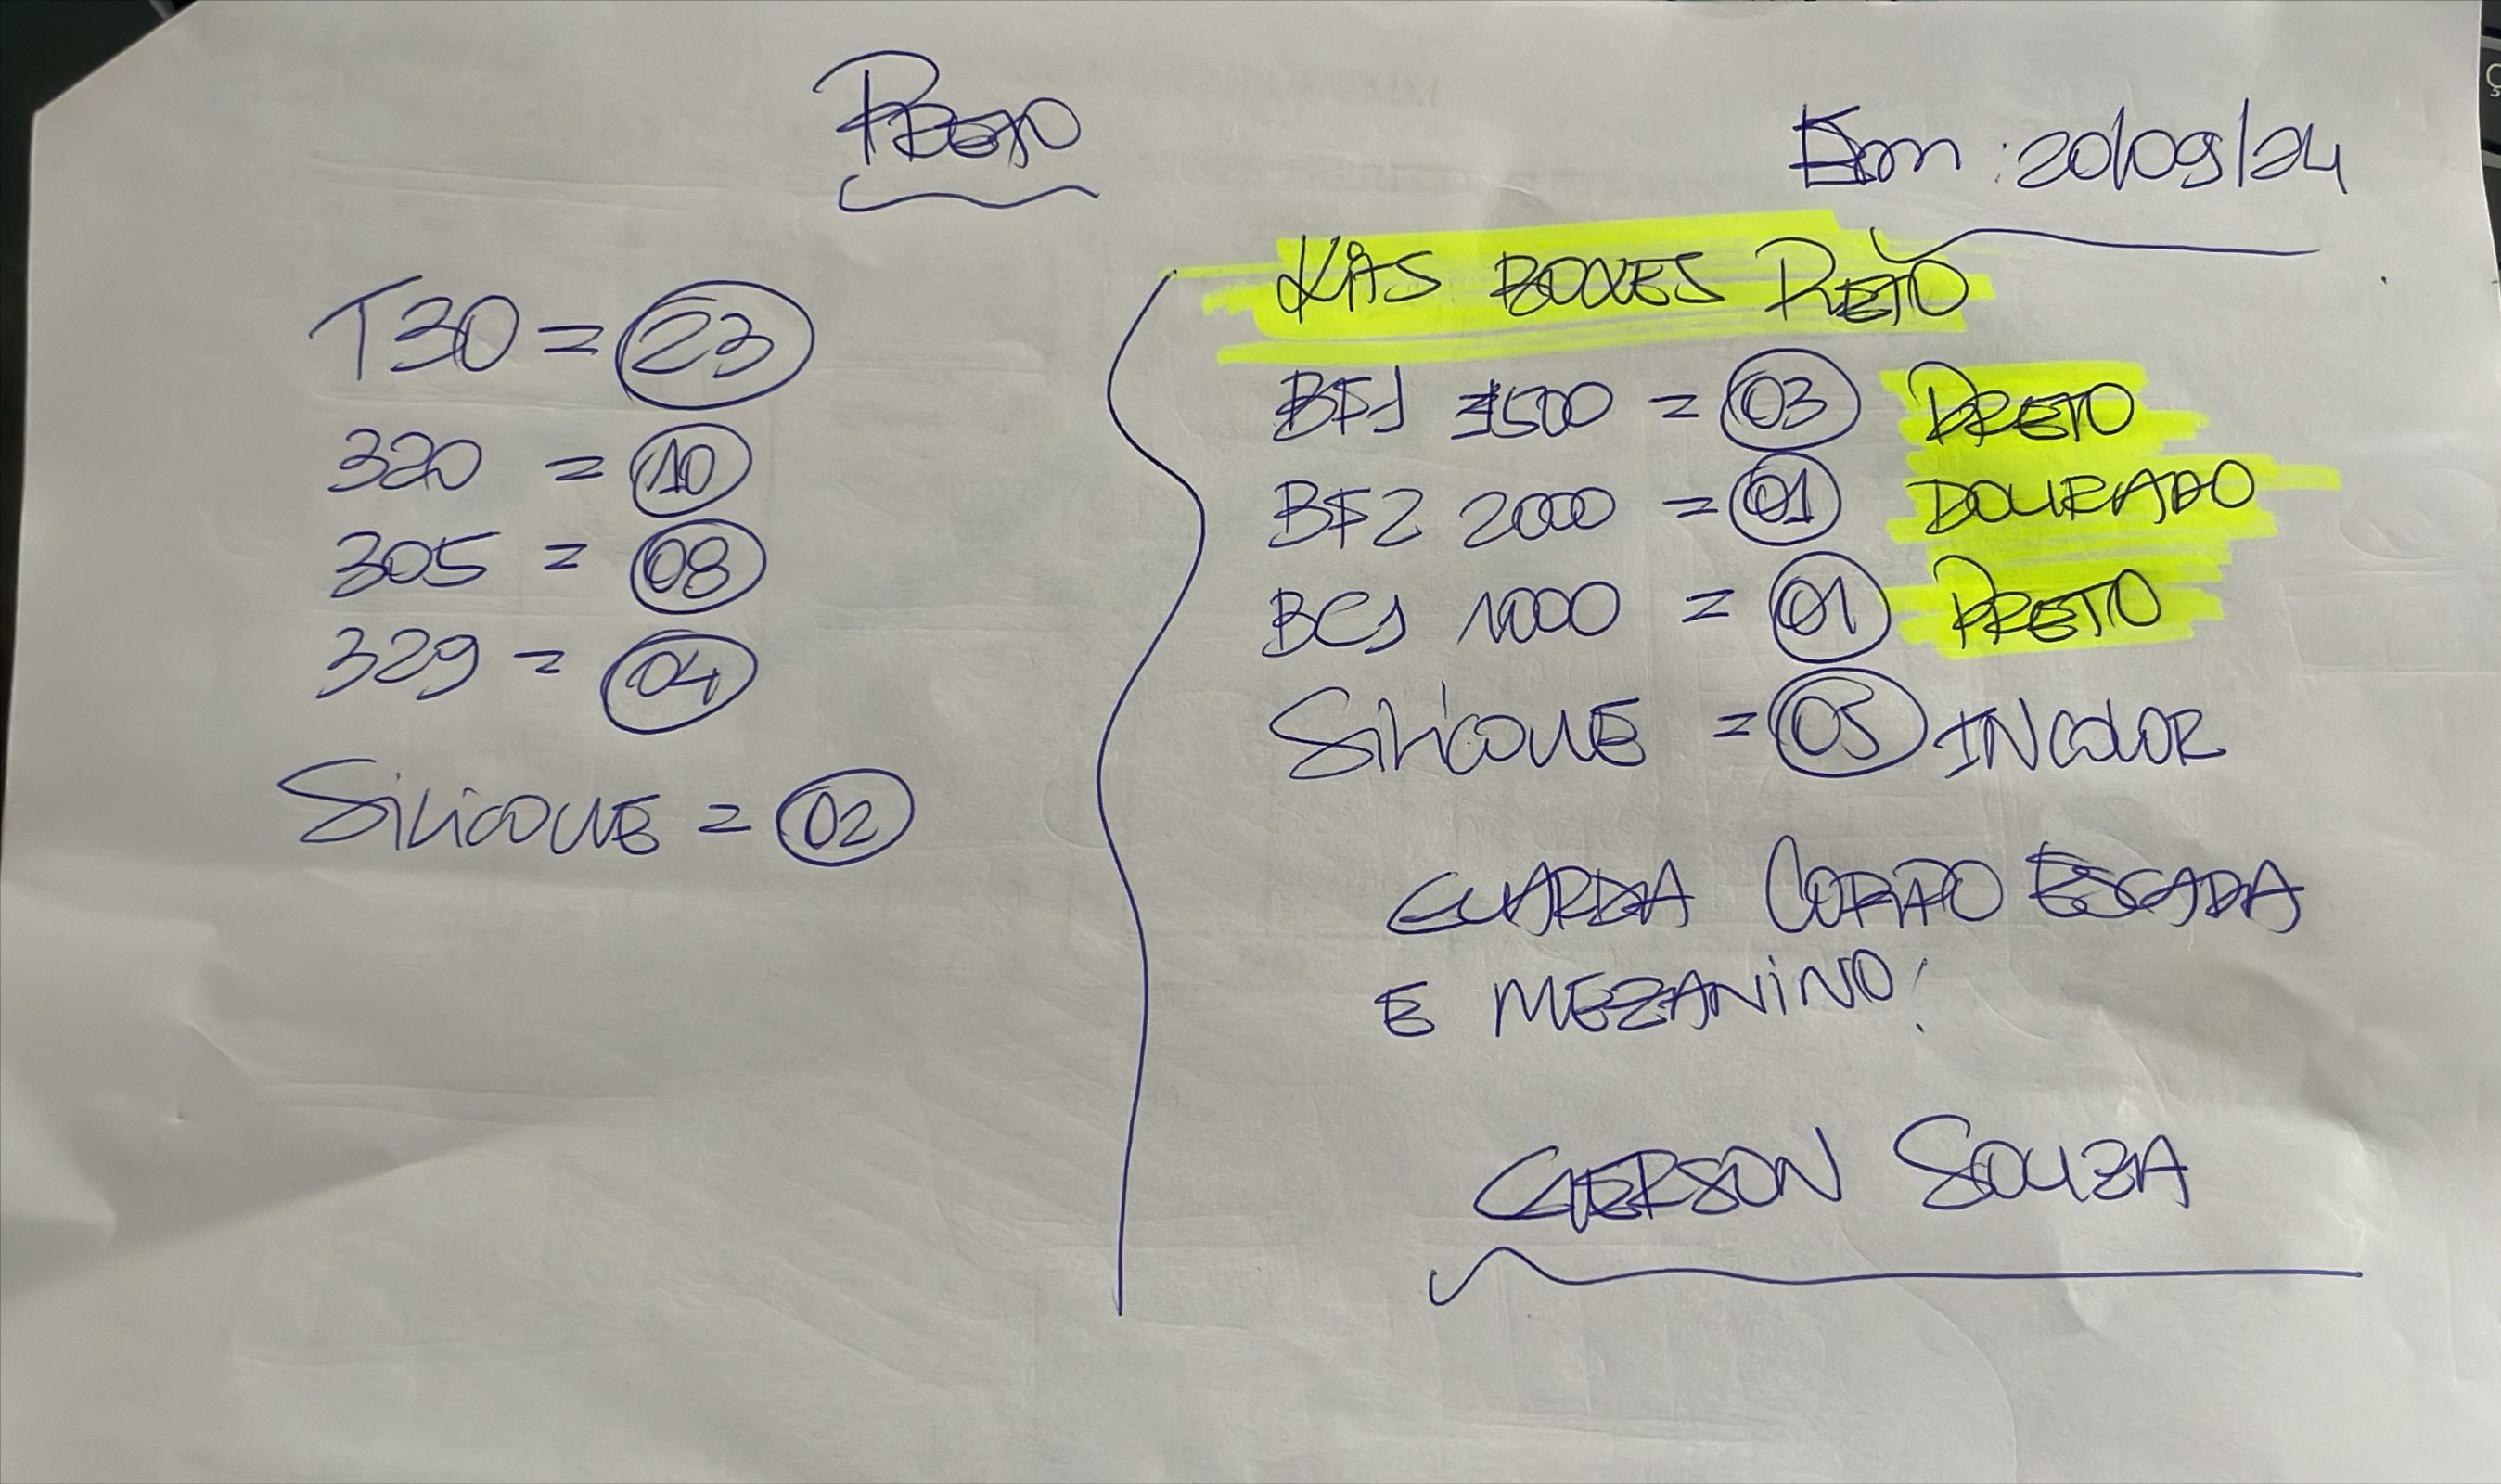 PRETO
Em: 20/09/24
T30 = 23
320 = 10
305 = 08
329 = 04
SiLicONE = 02
KitS BOXES PRETO
BF1 1500 = 03 PRETO
BF2 2000 = 01 DOURADO
BC1 1000 = 01 PRETO
SiLicONE = 05 INCOLOR
GUARDA CORPO ESCADA
E MEZANiNO!
GERSON SOUZA